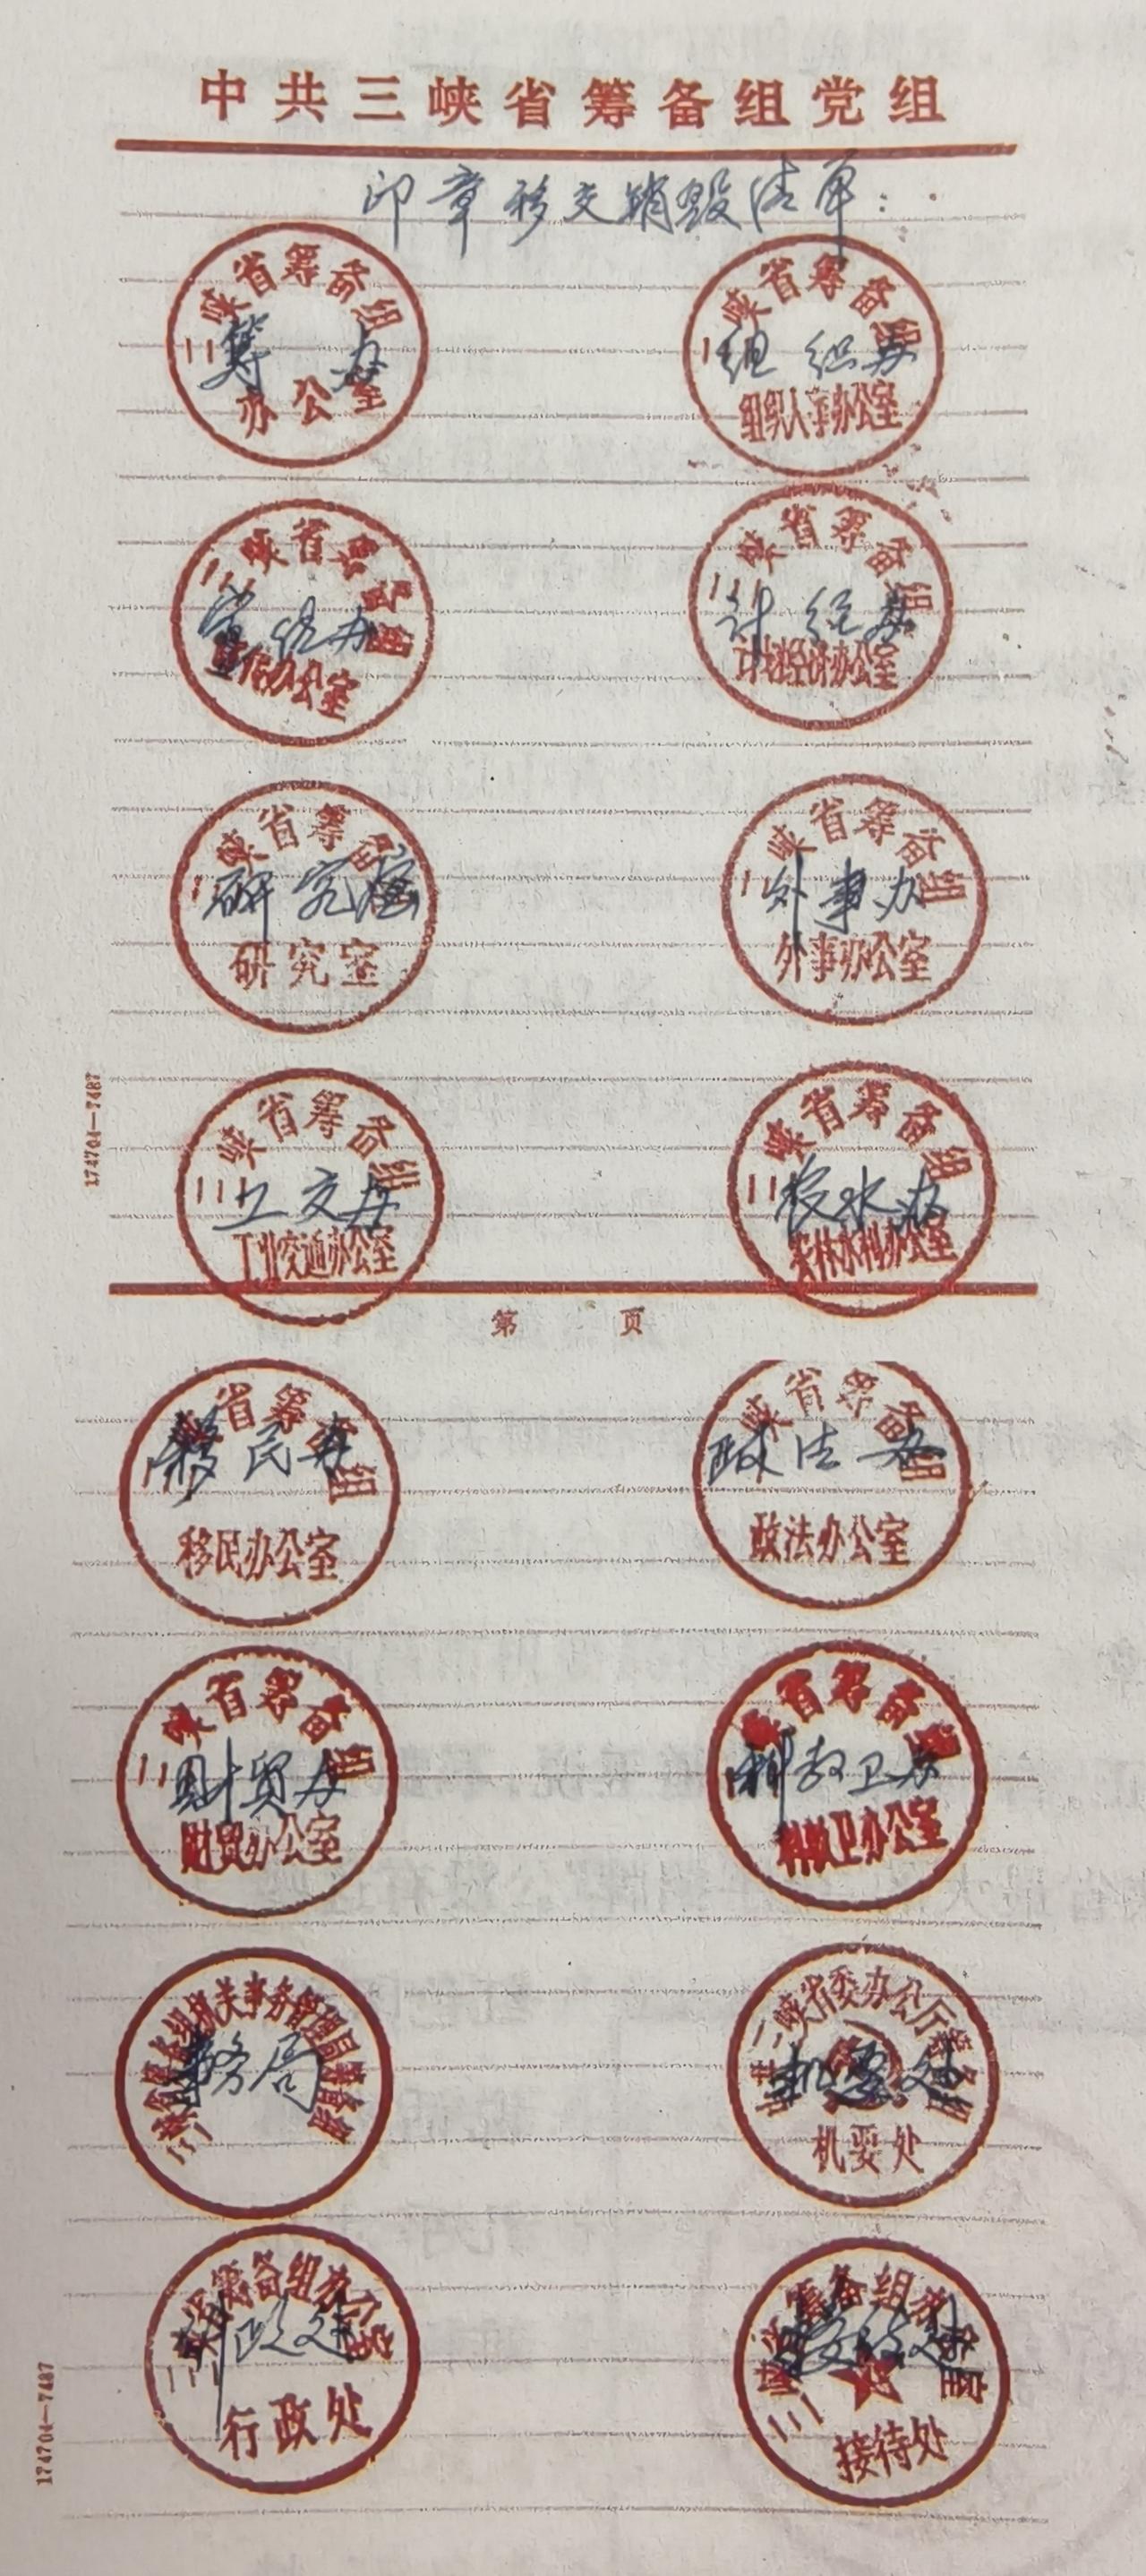 中共三峡省筹备组党组
印章移交销毁清单：
三峡省筹备组
筹 办
办公室
三峡省筹备组
组织办
组织人事办公室
三峡省筹备组
宣传办
宣传办公室
三峡省筹备组
计经办
计划经济办公室
三峡省筹备组
研究室
研究室
三峡省筹备组
外事办
外事办公室
174704—7487
三峡省筹备组
工交办
工业交通办公室
三峡省筹备组
农水办
农林水利办公室
第 页
三峡省筹备组
移民办
移民办公室
三峡省筹备组
政法办
政法办公室
三峡省筹备组
财贸办
财贸办公室
三峡省筹备组
科教卫办
科教卫办公室
三峡省筹备组机关事务管理局筹备组
事务局
中共三峡省委办公厅筹备组
机要处
机要处
三峡省筹备组办公室
行政处
行政处
三峡省筹备组办公室
接待处
接待处
174704—7487